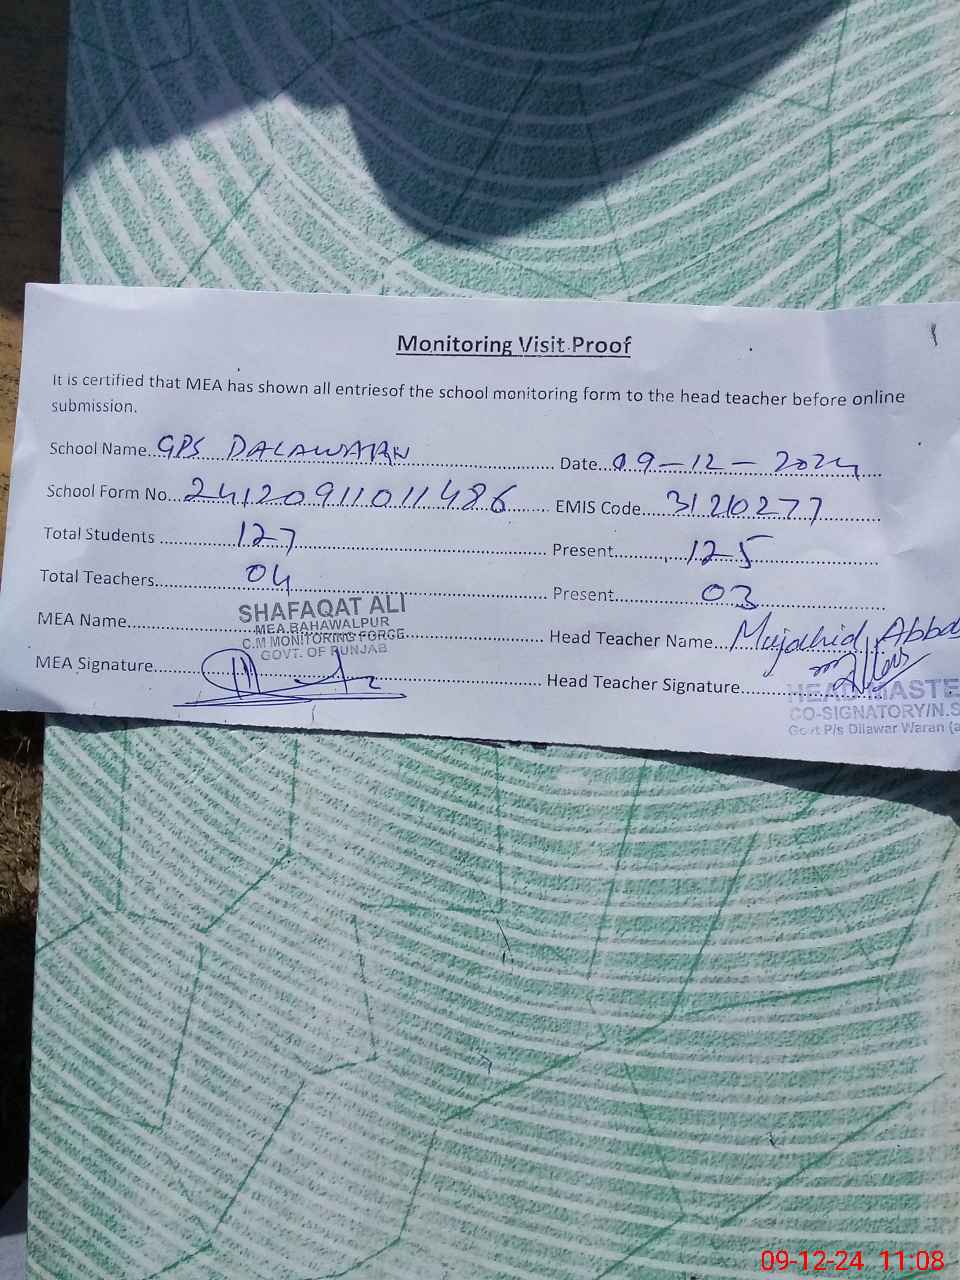 Monitoring Visit Proof
It is certified that MEA has shown all entriesof the school monitoring form to the head teacher before online
submission.
School Name..GPS DALAWARN.......... Date..09-12-2024....
School Form No...24120911011486...... EMIS Code....31210277........
Total Students ..........127.......... Present.........125........
Total Teachers..........04.......... Present.........03........
MEA Name.......... Head Teacher Name...Mujahid Abba
SHAFAQAT ALI
MEA.BAHAWALPUR
C.M MONITORING FORCE
GOVT. OF PUNJAB
MEA Signature.......... Head Teacher Signature..........
HEAD MASTE
CO-SIGNATORY/N.S
Govt P/s Dilawar Waran (a
09-12-24 11:08